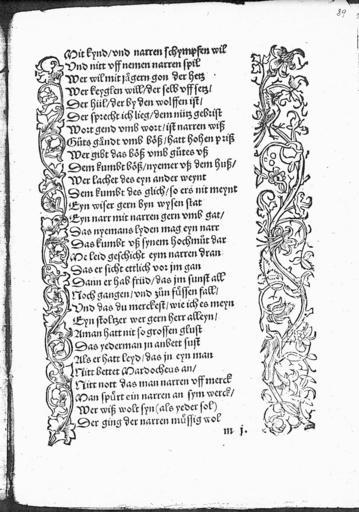 89
Mit kynd/vnd narren schympfen wil
Vnd nitt vff nemen narren spil
Wer wil mit jägern gon der hetz
Wer keyglen will/der selb vff setz/
Der hül/der by den wolffen ist/
Der sprech ich lieg/dem nütz gebrist
Wort gend vmb wort/ist narren wiß
Gůts gändt vmb böß/hatt hohen priß
Wer gibt das böß vmb gůtes vß
Dem kumbt böß/nyemer vß dem huß/
Wer lachet des eyn ander weynt
Dem kumbt des glich/so ers nit meynt
Eyn wiser gern byn wysen stat
Eyn narr mit narren gern vmb gat/
Das nyemans lyden mag eyn narr
Das kumbt vß synem hochmůt dar
Me leid geschicht eym narren dran
Das er sicht ettlich vor jm gan
Dann er hab früd/das jm sunst all
Noch gangen/vnd zůn füssen fall/
Vnd das du merckest/wie ich es meyn
Eyn stoltzer wer gern herr alleyn/
Aman hatt nit so grossen glust
Das yederman jn anbett sust
Als er hatt leyd/das jn eyn man
Nitt bettet Mardocheus an/
Nitt nott das man narren vff merck
Man spürt ein narren an sym werck/
Wer wiß wolt syn (als yeder sol)
Der ging der narren müssig wol
m j.